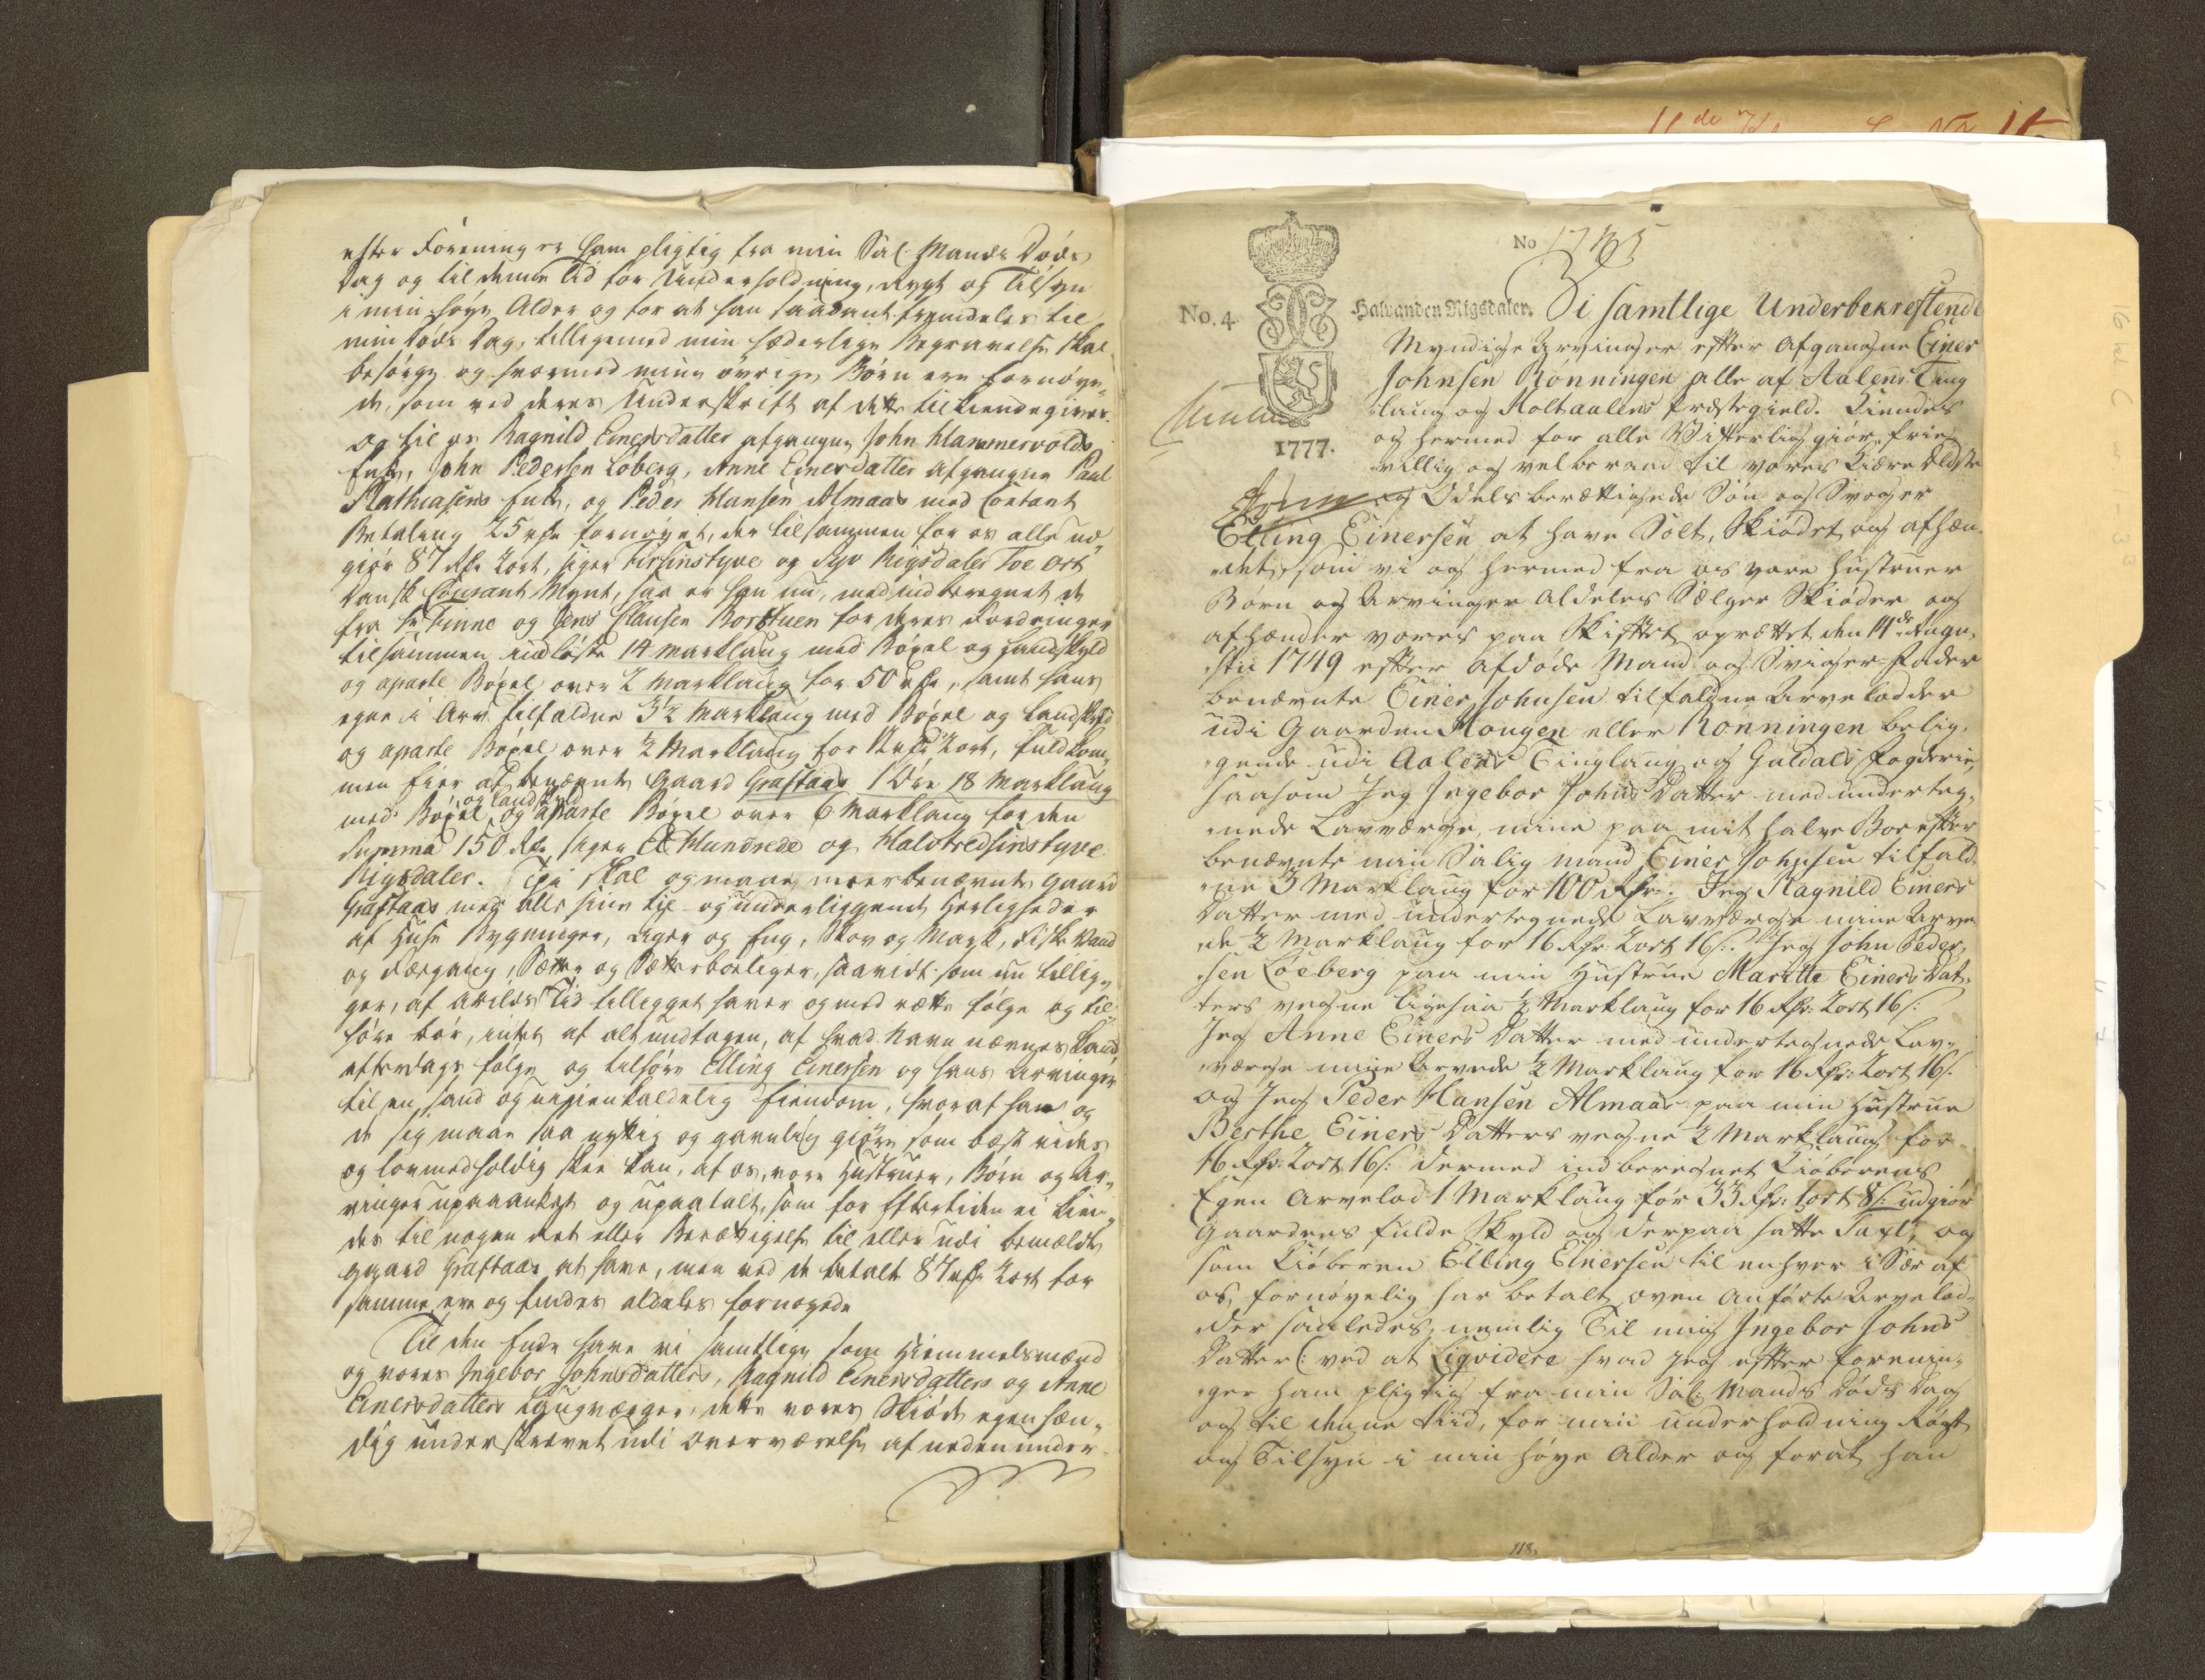 efter Forening er ham pligtig fra min Sal: Mands Døds
Dag og til denne Tid for Underholdning, Røgt og Tilsyn
i min høye Alder og for at han saadant fremdeles til
min Døds Dag, tilligemed min hæderlige Begravelse skal
besørge og hvormed mine øvrige Børn ere fornøye„
de, som ved deres Underskrift af dette tilkiendegives.
og til os Ragnild Einersdatter afgangne John Hammervolds
Enke, John Pedersen Löberg, Anne Einersdatter afgangne Paul
Mathiasens Enke, og Peder Hansen Almaas med Contant
Betaling 25 rdr fornøyet, der tilsammen for os alle ud„
giør 87 Rdr 2ort, siger Firsinstyve og Syv Rigsdaler Toe Ort
Dansk Courant Mynt, saa er han nu, med indberegnet de
fra Hr Finne og Jens Clausen Borstuen for deres Fordringer
tilsammen indløste 14 Marklaug med Bøxel og Landskyld
og aparte Bøxel over 2 Marklaug for 50 rdr, samt hans
egne i Arv tilfaldne 3½ Marklaug med Bøxel og Landskyld
og aparte Bøxel over ½ Marklaug for 12 rdr 2ort, fuldkom„
men Eier af benævnte Gaard Graftaas 1 Øre 18 Marklaug
og Landskyld
med Bøxel og aparte Bøxel over 6 Marklaug for den
Summa 150 Rdr, siger Et Hundrede og Halvtredsinstyve
Rigsdaler. Thi skal og maae meerbenævnte Gaard
Graftaas med alle sine til- og underliggende Herligheder
af Huse Bygninger, Ager og Eng, Skov og Mark, Fiske Vand
og Fægang, Sætter og Sætterboeliger, saavidt som nu tillig„
ger, af Arilds Tid tilligget haver og med rette følge og til„
høre bør, intet af alt undtagen, af hvad Navn nævnes kand,
efterdags følge og tilhøre Elling Einersen og hans Arvinger
til en sand og uigienkaldelig Eiendom, hvoraf han og
de sig maae saa nyttig og gavnlig giøre som best vides
og lovmedholdig skee kan, af os, vore Hustruer, Børn og Ar„
vinger upaaanket og upaatalt, som for Eftertiden ei kien„
des til nogen Ret eller Berettigelse til eller udi bemældte
Gaard Graftaas at have, men ved de betalte 87 rdr 2ort for
samme ere og findes aldeles fornøyede
Til den Ende have vi samtlige som Hiemmelsmænd
og vores Ingebor Johnsdatters, Ragnild Einersdatters og Anne
Einersdatters Laugværger, dette vores Skiøde egenhæn„
dig underskrevet udi Overværelse af nedenunder-
No
No. 4.
Halvanden Rigsdaler.
1777.
Vi samtlige Underbekreftende
Myndige Arvinger efter Afgangne Einer
Johnsen Rønningen alle af Aalens Ting
laug og Holtaalens Præstegield. Kiendes
og hermed for alle Witterlig giør, frie
villig og velberaad til vores Kiære Ældste
og Odels berættigede Søn og Svoger
Elling Einersen at have Solt, Skiødet og afhæn„
det, som vi og hermed fra os vore Hustruer
Børn og Arvinger Aldeles Sælger Skiøder og
afhænder vores paa Skiftet oprættet den 14de Augu„
stii 1749 efter afdøde Mand og Sviger-Fader
benævnte Einer Johnsen tilfaldne Arvelodder
udi Gaarden Hougen eller Rønningen belig„
gende udi Aalens Tinglaug og Guldals Fogderie,
saasom Jeg Ingebor Johns Datter med underteg„
nede Lavværge, mine paa mit halve Boe efter
benævnte min Salig Mand Einer Johnsen tilfald
ne 3 Marklaug for 100 Rdr: Jeg Ragnild Einers
Datter med undertegnede Lavværge mine Arve
de ½ Marklaug for 16 Rdr: 2ort 16 s: Jeg John Peder„
sen Löeberg paa min Hustrue Maritte Einers Dat„
ters vegne ligesaa ½ Marklaug for 16 Rdr: 2ort 16 s:
Jeg Anne Einers Datter med undertegnede Lav„
værge mine Arvede ½ Marklaug for 16 Rdr: 2ort 16 s:
og Jeg Peder Hansen Almaas paa min Hustrue
Berthe Einers Datters vegne ½ Marklaug for
16 Rdr: 2ort 16 s: dermed indberegnet Kiøberens
Egen Arvelod 1 Marklaug for 33 Rdr: 1ort 8 s: udgiør
Gaardens fulde Skyld og derpaa satte Taxt, og
som Kiøberen Elling Einersen til enhver i Sær af
os, fornøyelig har betalt oven anførte Arvelod„
der saaledes, nemlig Til mig Ingebor Johns
Datter (: ved at Liqvidere hvad jeg efter forenin„
ger ham pligtig fra min Sal: Mands Døds Dag
og til denne tiid, for min underholdning Røgt
og Tilsyn i min høye Alder og forat han
118.